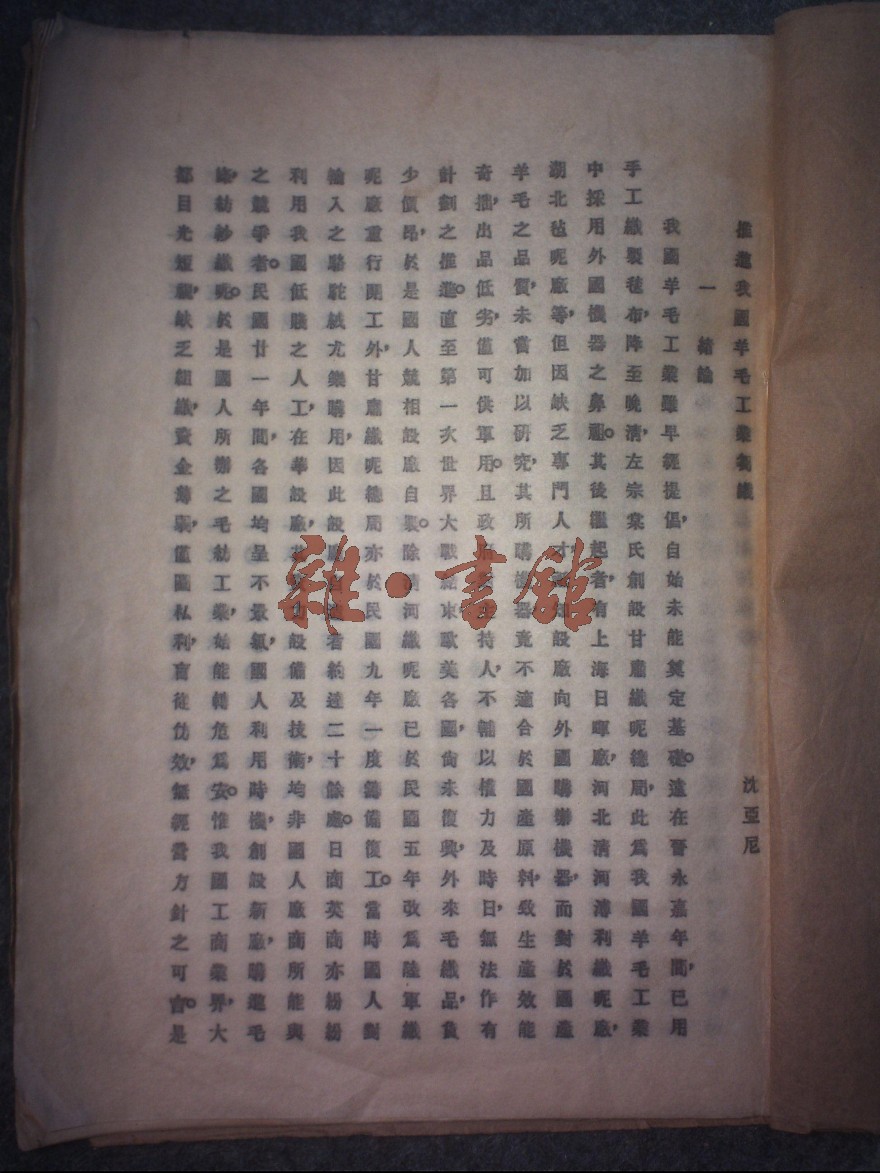 推進我國羊毛工業芻議
沈亞尼
一 緒論
我國羊毛工業雖早經提倡，自始未能奠定基礎。遠在晉永嘉年間，已用
手工織製毯布，降至晚清，左宗棠氏創設甘肅織呢總局，此爲我國羊毛工業
中採用外國機器之鼻祖。其後繼起者，有上海日暉廠，河北清河溥利織呢廠，
湖北毡呢廠等，但因缺乏專門人才，設廠向外國購辦機器，面對於國產
羊毛之品質，未嘗加以研究，其所購機器竟不適合於國產原料，致生產效能
奇拙，出品低劣，僅可供軍用。且政府主持人，不輔以權力及時日，無法作有
計劃之推進。直至第一次世界大戰結束歐美各國，尚未復興，外來毛織品，貨
少價昂，於是國人競相設廠自製。除清河織呢廠已於民國五年改爲陸軍織
呢廠重行開工外，甘肅織呢總局亦於民國九年一度籌備復工。當時國人對
輸入之駱駝絨尤樂購用，因此設廠者約達二十餘處。日商英商亦紛紛
利用我國低賤之人工，在華設廠，其設備及技術，均非國人廠商所能與
之競爭者。民國廿一年間，各國均呈不景氣，國人利用時機，創設新廠，購進毛
條，紡紗織呢。於是國人所辦之毛紡工業，始能轉危爲安。惟我國工商業界，大
都目光短視，缺乏組織，資金薄弱，僅圖私利，盲從仿效，無經營方針之可言。是
雜·書館